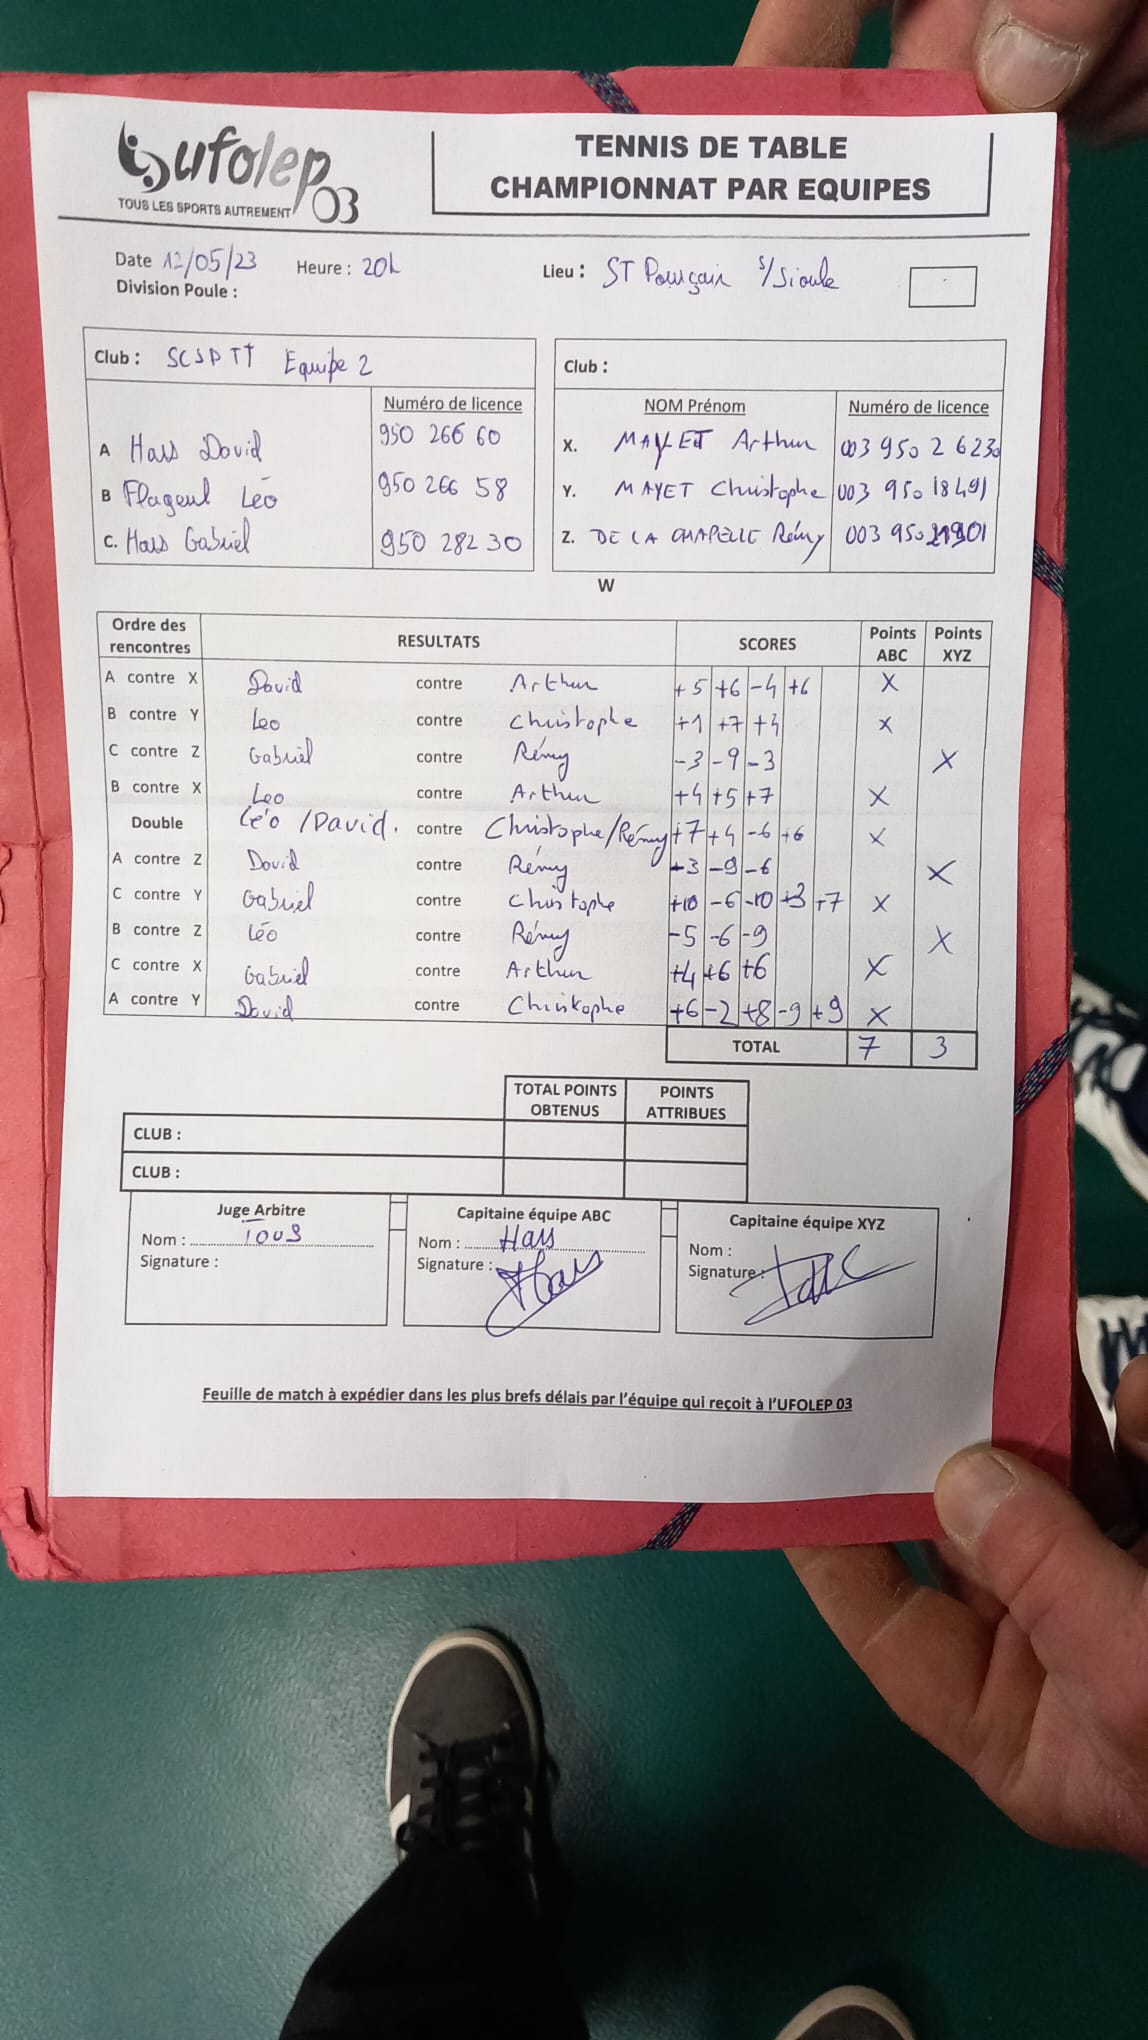 ufolep 03
TOUS LES SPORTS AUTREMENT
TENNIS DE TABLE
CHAMPIONNAT PAR EQUIPES
Date 12/05/23 Heure : 20h Lieu : ST Pourçain s/Sioule
Division Poule :
Club : SCSPTT Equipe 2 Club :
Numéro de licence NOM Prénom Numéro de licence
A Hass David 950 266 60 X. MAYET Arthur 003 950 2 6230
B Flageul Léo 950 266 58 Y. MAYET Christophe 003 950 18491
C. Hass Gabriel 950 282 30 Z. DE LA CHAPELLE Rémy 003 950
W
Ordre des rencontres RESULTATS SCORES Points ABC Points XYZ
A contre X David contre Arthur +5 +6 -4 +6 X
B contre Y Leo contre Christophe +1 +7 +4 X
C contre Z Gabriel contre Rémy -3 -9 -3 X
B contre X Leo contre Arthur +4 +5 +7 X
Double Léo /David. contre Christophe/Rémy +7 +4 -6 +6 X
A contre Z David contre Rémy -3 -9 -6 X
C contre Y Gabriel contre Christophe +10 -6 -10 +3 +7 X
B contre Z Léo contre Rémy -5 -6 -9 X
C contre X Gabriel contre Arthur +4 +6 +6 X
A contre Y David contre Christophe +6 -2 +8 -9 +9 X
TOTAL 7 3
TOTAL POINTS OBTENUS POINTS ATTRIBUES
CLUB :
CLUB :
Juge Arbitre Capitaine équipe ABC Capitaine équipe XYZ
Nom : TOUS Nom : Hass Nom :
Signature : Signature : Hass Signature :
Feuille de match à expédier dans les plus brefs délais par l'équipe qui reçoit à l'UFOLEP 03